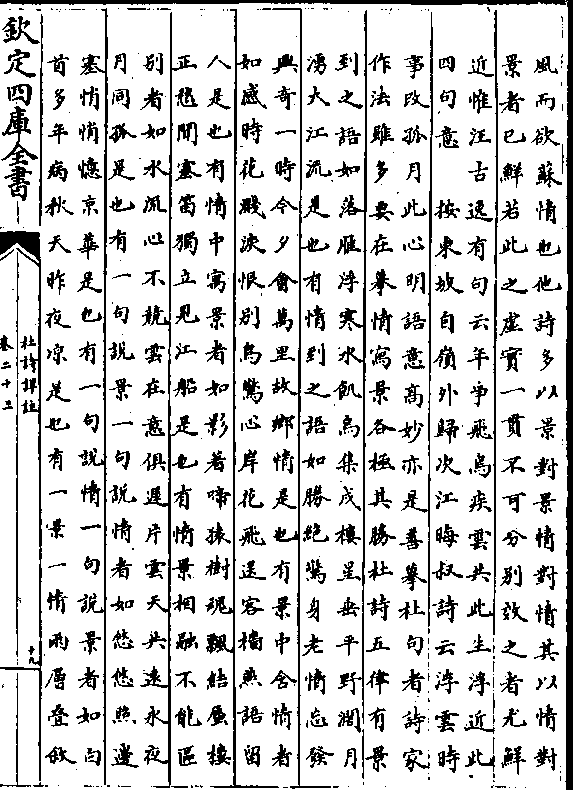 風而欲蘇情也他詩多以景對景情對情其以情對
景者已鮮若此之虛實一貫不可分别效之者尤鮮
近惟汪古逸有句云年爭飛鳥疾雲共此生浮近此
四句意　按東坡自嶺外歸次江晦叔詩云浮雲時
事改孤月此心明語意高妙亦是善摹杜句者詩家
作法雖多要在摹情寫景各極其勝杜詩五律有景
到之語如落雁浮寒水飢烏集戍樓星垂平野濶月
湧大江流是也有情到之語如勝絶驚身老情忘發
興奇一時今夕㑹萬里故鄉情是也有景中含情者
如感時花濺淚恨别鳥驚心岸花飛送客檣燕語留
人是也有情中寓景者如影著啼猿樹魂飄結蜃樓
正愁聞塞笛獨立見江船是也有情景相融不能區
别者如水流心不競雲在意俱遲片雲天共逺永夜
月同孤是也有一句說景一句說情者如悠悠照邊
塞悄悄憶京華是也有一句說情一句說景者如白
首多年病秋天昨夜凉是也有一景一情兩層叠敘
欽定四庫全書
杜詩詳註
卷二十三
十九